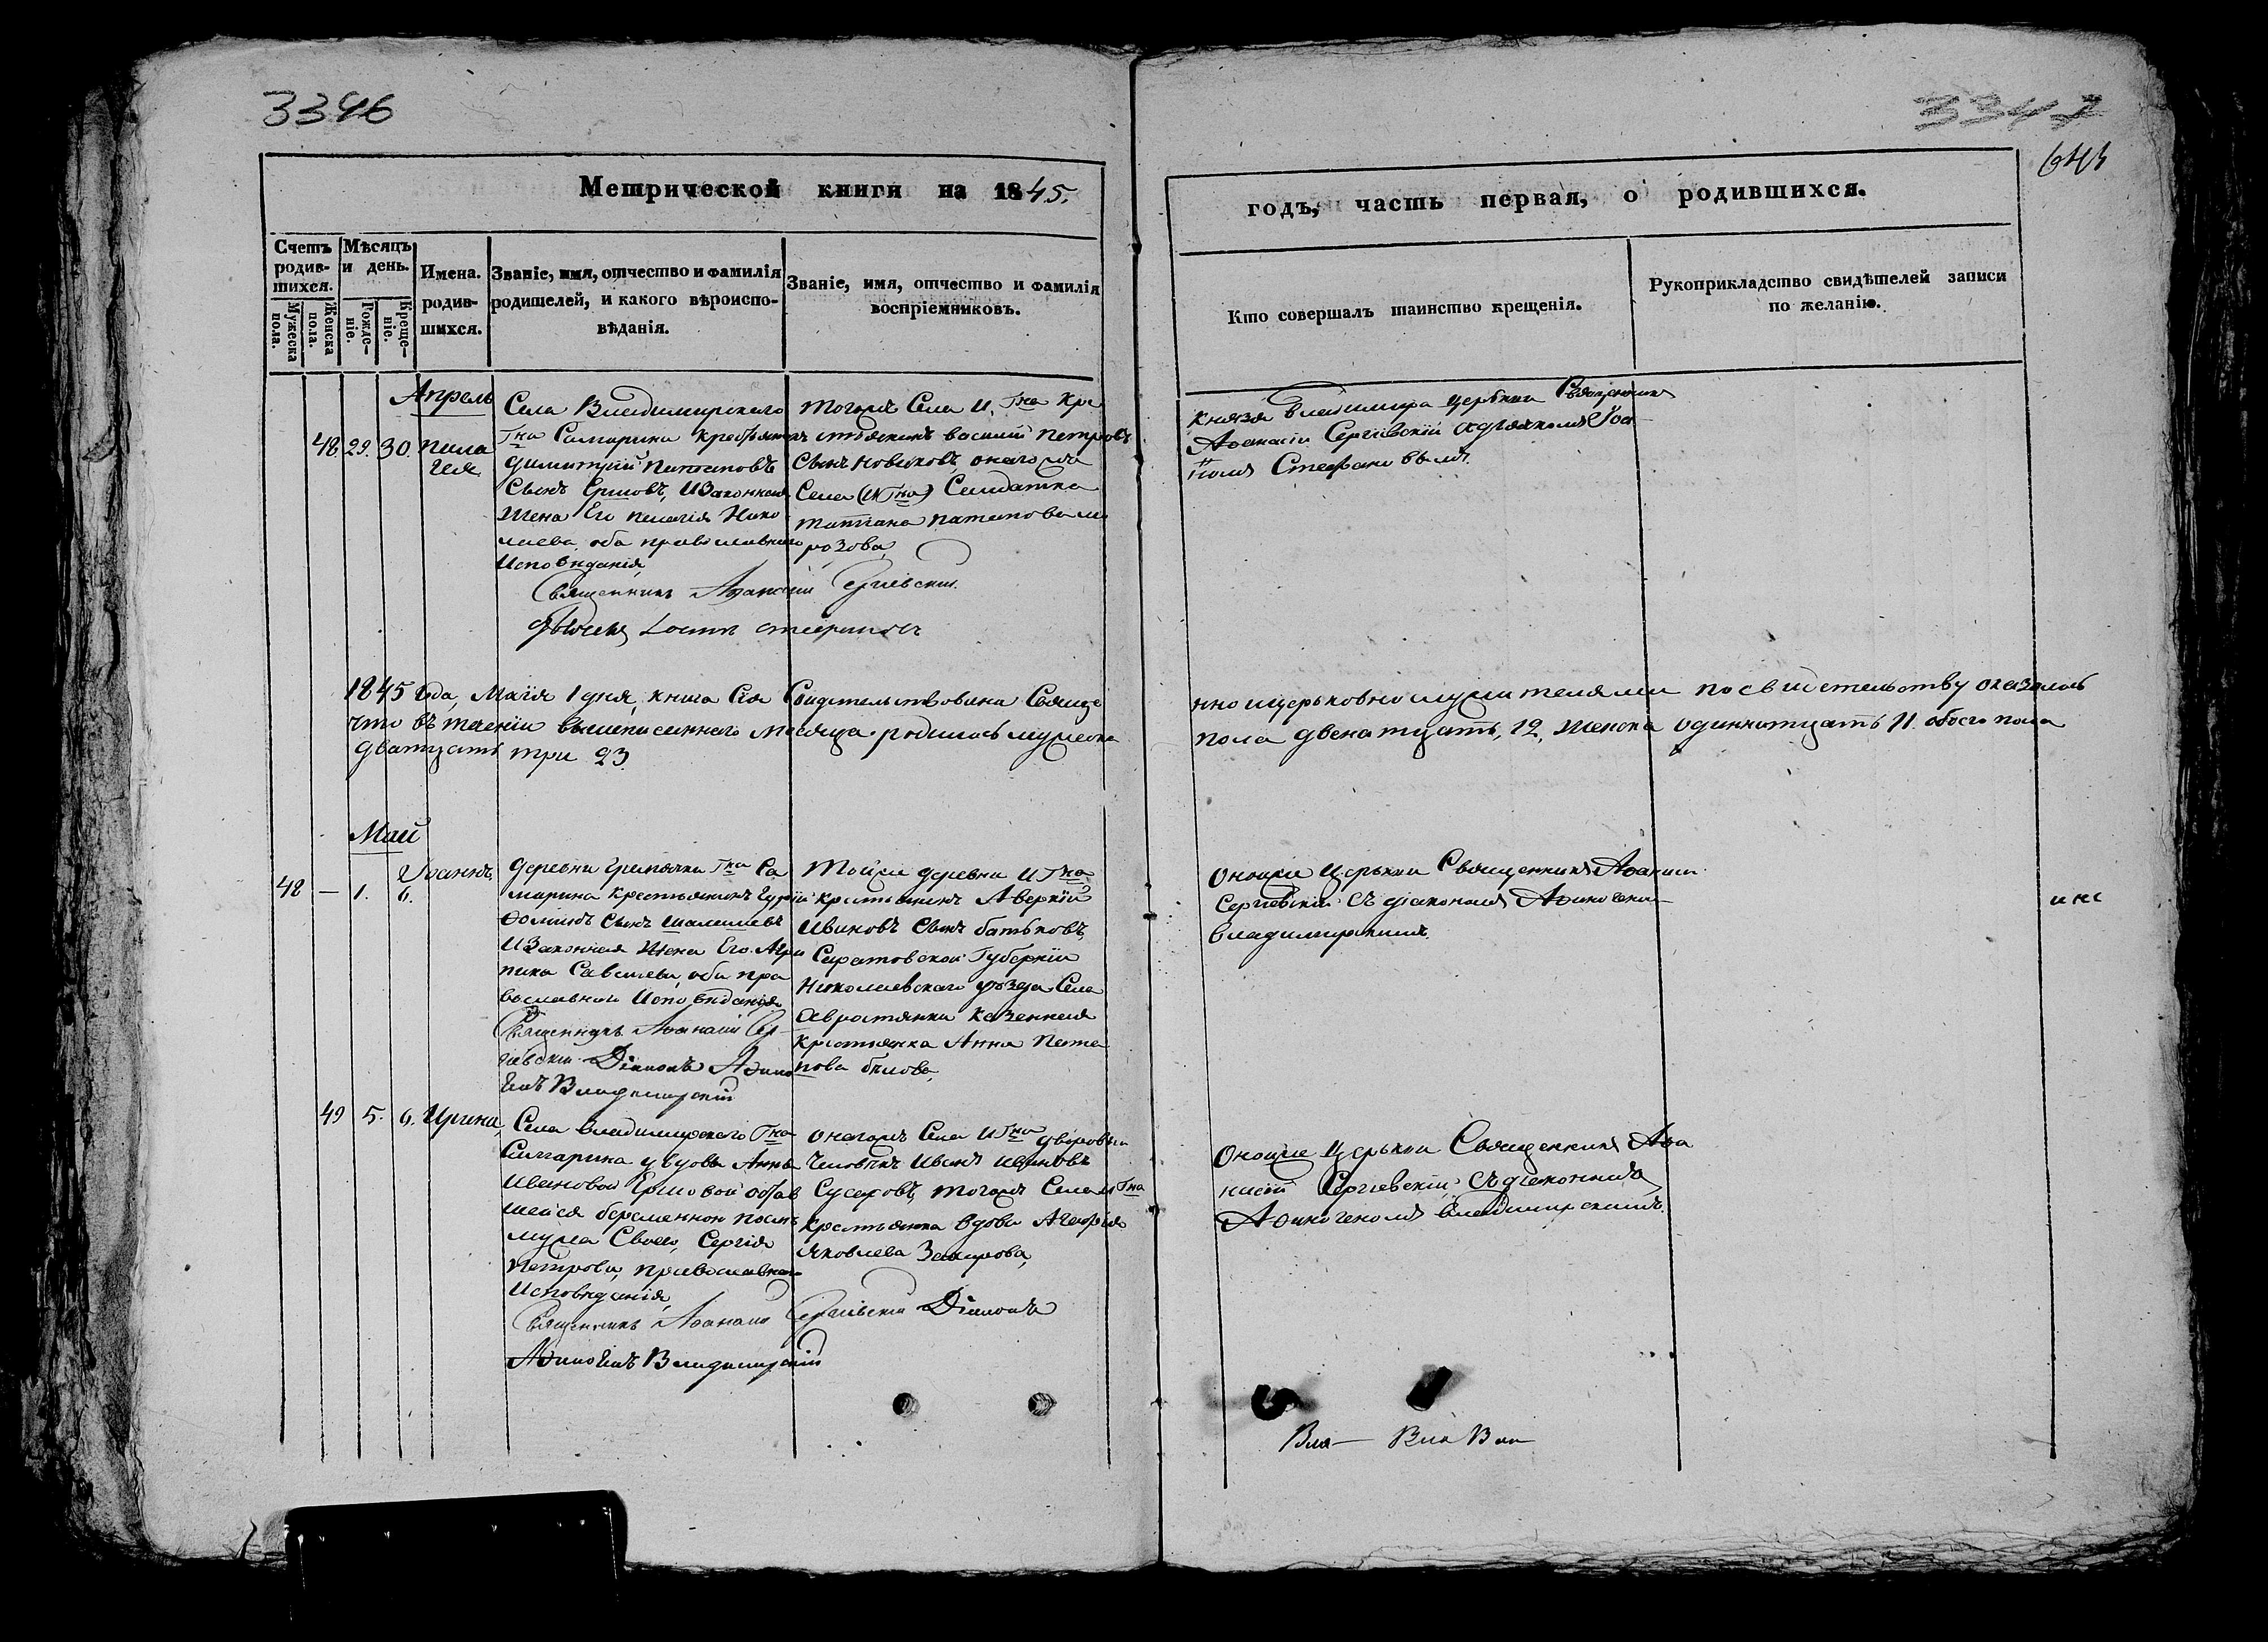 3346
3347
Метрической книги на 1845.
годъ, часть первая, о родившихся.
Счетъ родив-
шихся.
Мужеска пола.
Женска пола.
Мѣсяцъ
и день.
Рожде-
ніе.
Креще-
ніе.
Имена.
родив-
шихся.
Званіе, имя, отчество и фамилія
родителей, и какого вѣроиспо-
вѣданія.
Званіе, имя, отчество и фамилія
воспріемниковъ.
Кто совершалъ таинство крещенія.
Рукоприкладство свидѣтелей записи
по желанію.
Апрель
48 29. 30. Пела
гея
Села Владимирскаго
Гна Самарина крестьянинъ
Димитрий
Сынъ Ершовъ, и Законная
Жена Его пелагія Нико
лаева, оба православнаго
Исповѣданія,
Священникъ Афанасій Сергіевскій.
тогожъ Села и Гна Кре
стьянинъ василий петровъ
Сынъ Новиковъ, онагожъ
Села (и Гна) Солдатка
татіана патапова мо
розова,
Князя Владимира церькви Священникъ
Афанасіи Сергіевскій
Стефановымъ.
1845 года, Маія 1 дня, книга Сія Свидетельствована Свяще
нно ицерьковно служителями по свидетельству оказалось
что въ теченіи вышеписаннаго месяца родилось мужеска
пола двенатцать, 12, женска одиннатцать 11. обоего пола
дватцать три 23.
Май
48 — 1. 6. Иоаннъ,
деревни Гна Са
марина крестьянинъ Гурій
Фоминъ Сынъ
и Законная Жена Его Агри
пина Савельева, оба пра
вославнаго Исповѣданія
Священникъ Афанасій Сер
гіевскій Діаконъ
Владимирскій
Тойже деревни и Гна
крестьянинъ Аверкій
Ивановъ Сынъ батьковъ,
Саратовской Губерніи
Николаевскаго уѣзда Села
казенная
Крестьянка Анна Пота
пова белова,
Оноиже Церькви Священникъ Афанасіи
Сергіевскій Съ діакономъ
Владимирскимъ.
49 5. 6. Ирина,
Села Владимирскаго Гна
Самарина у вдовы Анны
Ивановой Ершовой остав
шейся беременною послѣ
мужа Своего, Сергія
Петрова, православнаго
Исповѣданія,
Священникъ Афанасій Сергіевскій Діаконъ
Владимирскій
онагожъ Села и Гна дворовыи
Человѣкъ Иванъ Ивановъ
тогожъ Села и Гна
Крестьянка вдова
Яковлева
Оноиже Церькви Священникъ Афа
насій Сергіевскій, Съ діакономъ
Афиногеномъ Владимирскимъ.